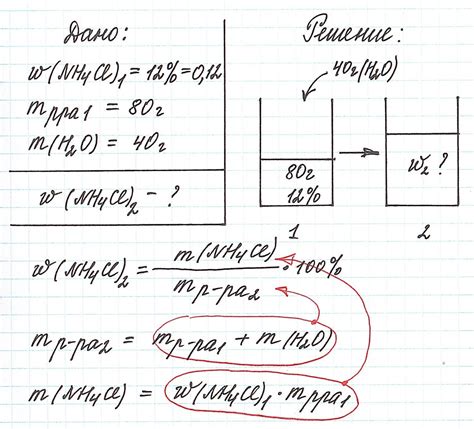 Дано:
w(NH4Cl)1 = 12% = 0,12
mрра1 = 80г
m(H2O) = 40г
w(NH4Cl)2 - ?
Решение:
40г(H2O)
80г
12%
w2 ?
1
2
w(NH4Cl)2 = m(NH4Cl) / mр-ра2 · 100%
mр-ра2 = mр-ра1 + m(H2O)
m(NH4Cl) = w(NH4Cl)1 · mрра1